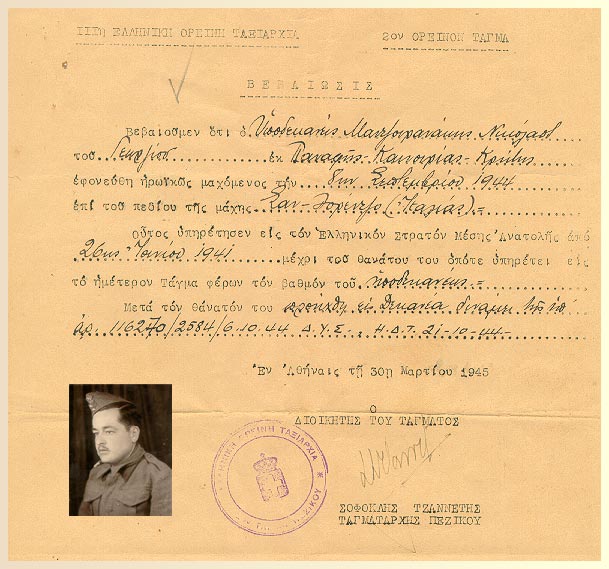 ΙΙΙη ΕΛΛΗΝΙΚΗ ΟΡΕΙΝΗ ΤΑΞΙΑΡΧΙΑ 2ον ΟΡΕΙΝΟΝ ΤΑΓΜΑ
ΒΕΒΑΙΩΣΙΣ
Βεβαιοῦμεν ὅτι ὁ Ὑποδεκανεύς Μανουσογιαννάκης Νικόλαος
τοῦ Γεωργίου ἐκ Παναγιᾶς-Καινουρίας-Κρήτης
ἐφονεύθη ἡρωϊκῶς μαχόμενος τήν 8ην Σεπτεμβρίου 1944
ἐπί τοῦ πεδίου τῆς μάχης Σαν-Λορέντζο (Ἰταλίας)=
Οὗτος ὑπηρέτησεν εἰς τόν Ἑλληνικόν Στρατόν Μέσης Ἀνατολῆς ἀπό
26ης Ἰουνίου 1941 μέχρι τοῦ θανάτου του ὁπότε ὑπηρέτει εἰς
τό ἡμέτερον Τάγμα φέρων τόν βαθμόν τοῦ ὑποδεκανέως=
Μετά τόν θάνατόν του προήχθη εἰς Δεκανέα δυνάμει τῆς ὑπ'
ἀρ. 116270/2584/6.10.44 Δ.Υ.Σ., Η.Δ.Τ. 21-10-44-
Ἐν Ἀθήναις τῇ 30ῃ Μαρτίου 1945
Ο
ΔΙΟΙΚΗΤΗΣ ΤΟΥ ΤΑΓΜΑΤΟΣ
ΟΡΕΙΝΗ ΤΑΞΙΑΡΧΙΑ
ΣΟΦΟΚΛΗΣ ΤΖΑΝΝΕΤΗΣ
ΤΑΓΜΑΤΑΡΧΗΣ ΠΕΖΙΚΟΥ